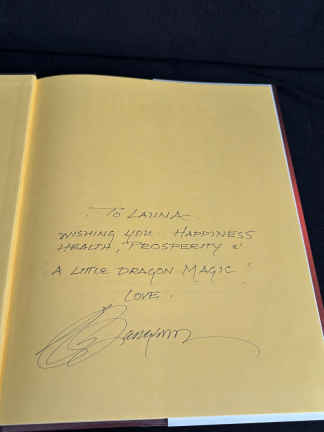 To LAUNA
WISHING YOU HAPPINESS
HEALTH, PROSPERITY &
A LITTLE DRAGON MAGIC
LOVE.